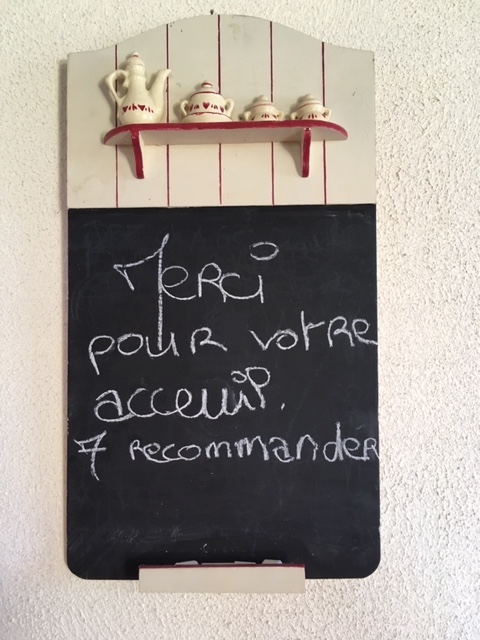 Merci
pour votre
acceuil.
7 recommander